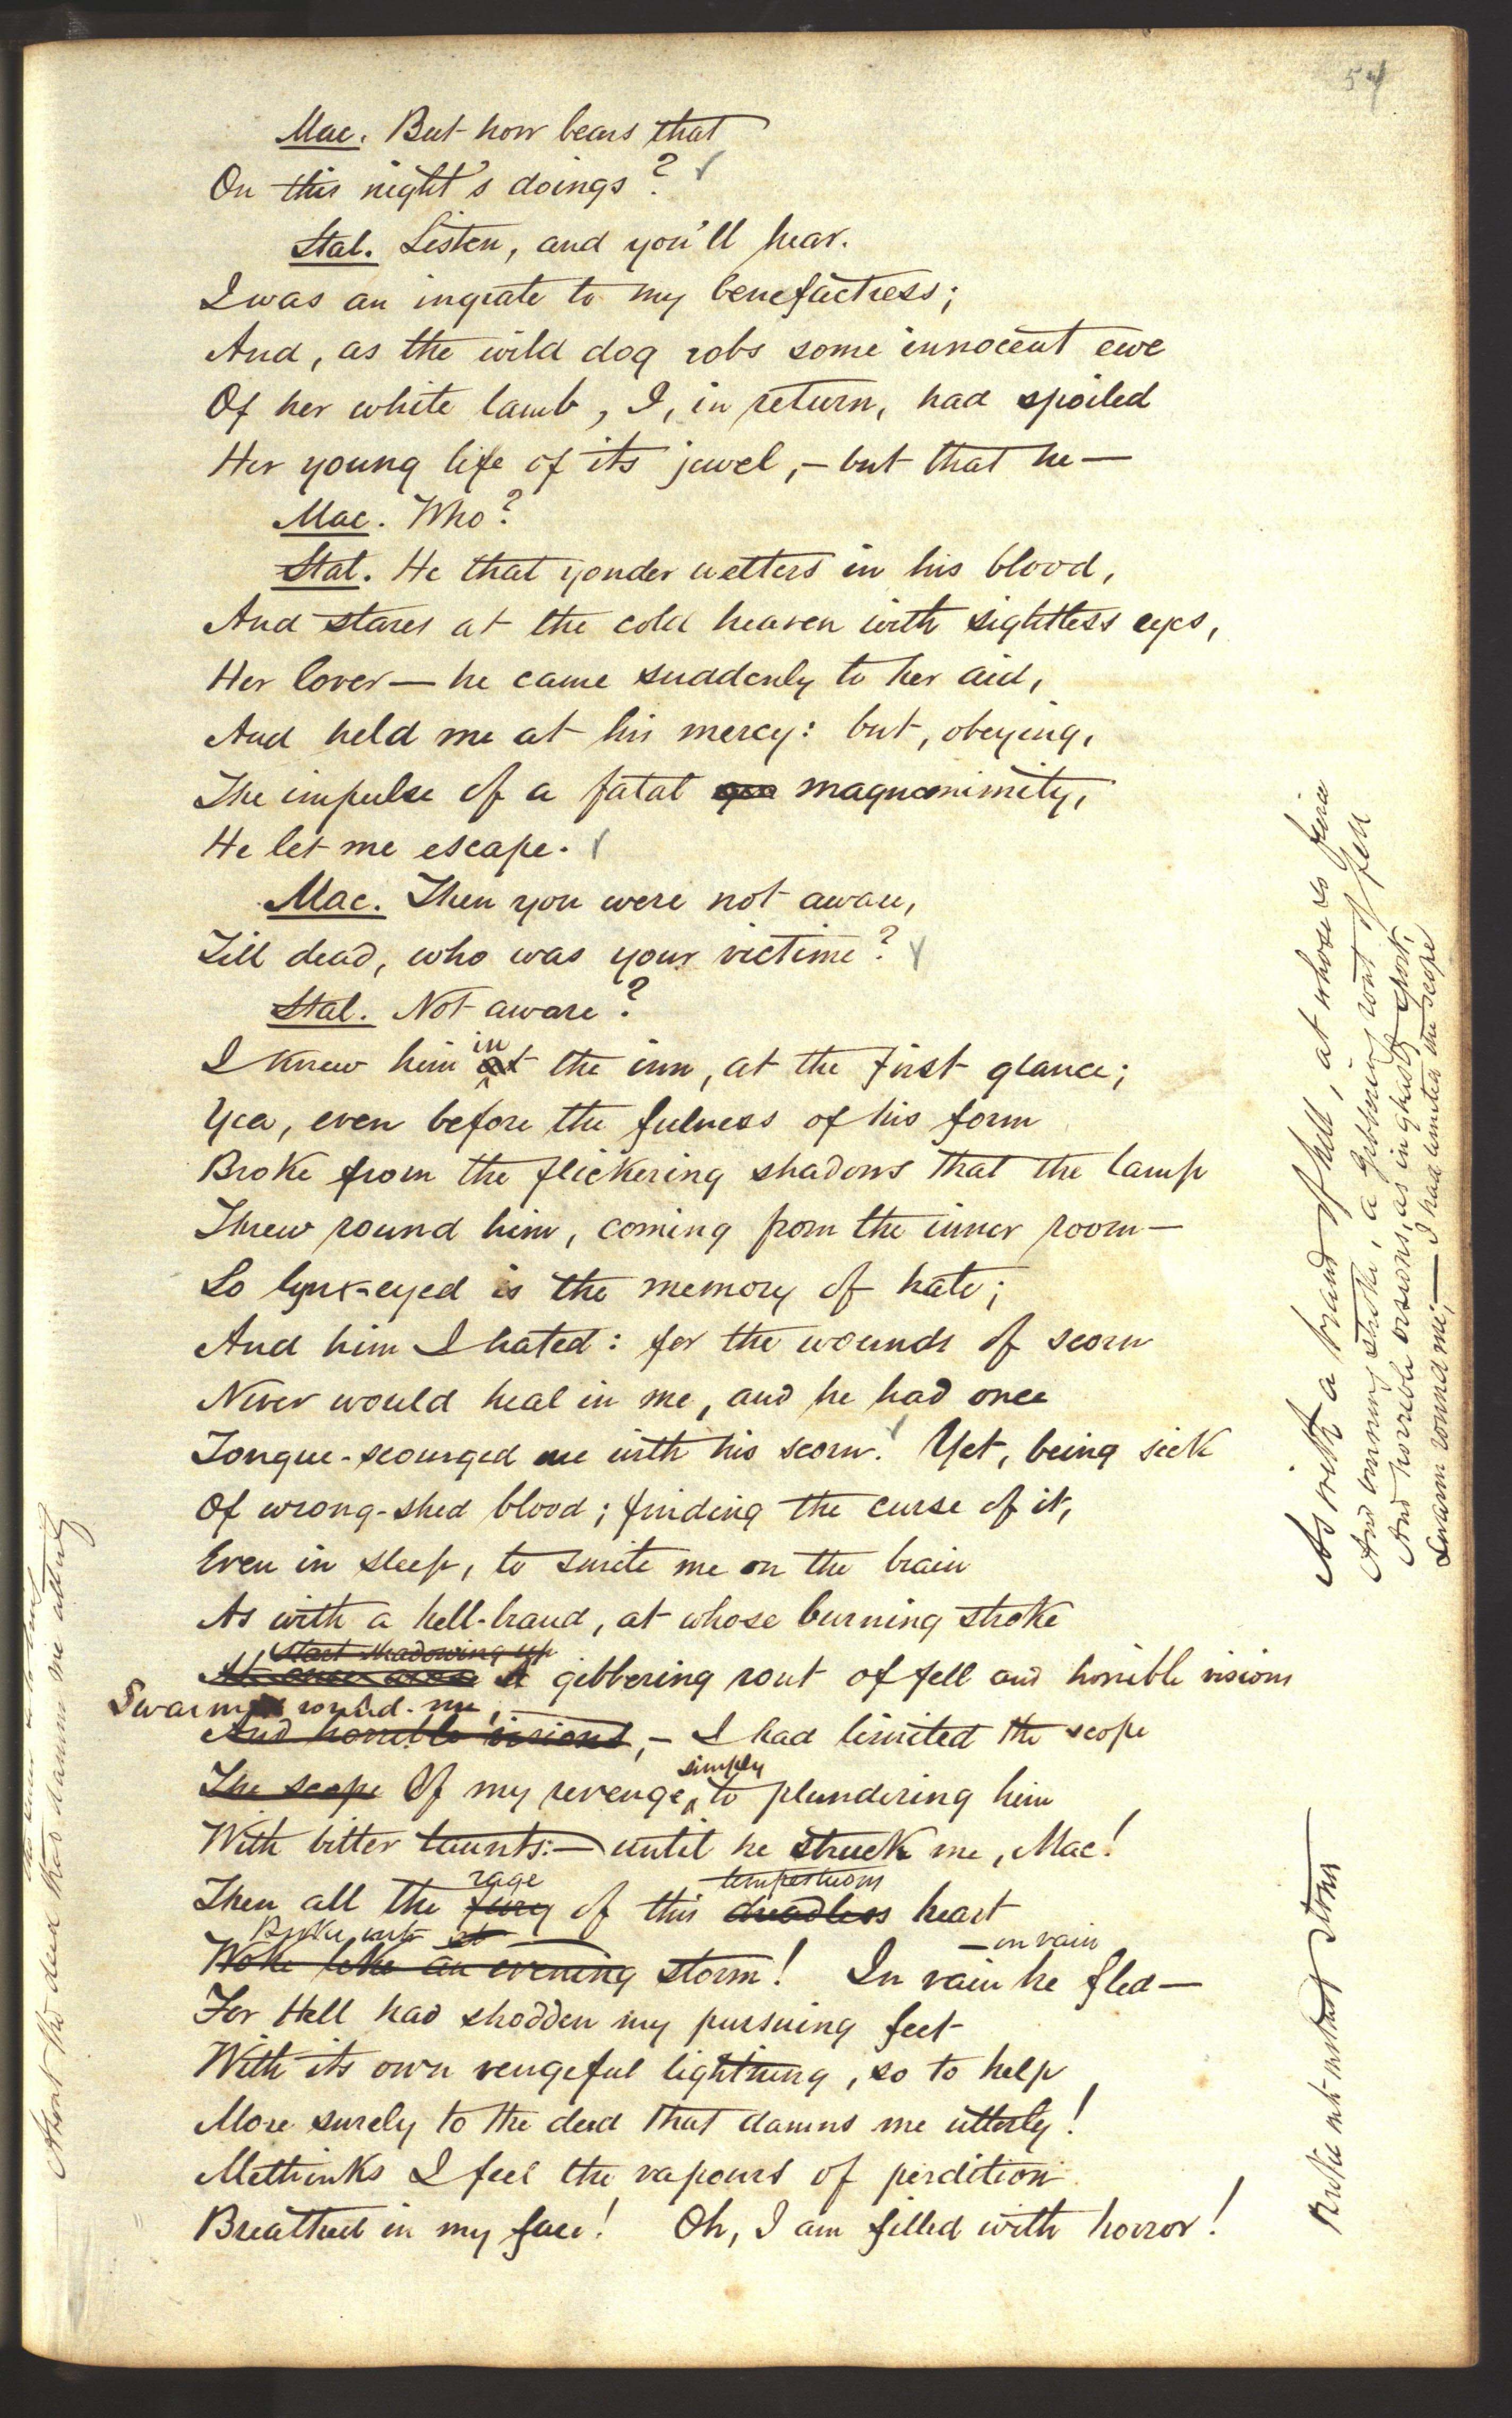 54
Mac. But how bears that
On this night's doings?
Stal. Listen, and you'll hear.
I was an ingrate to my benefactress;
And, as the wild dog robs some innocent ewe
Of her white lamb, I, in return, had spoiled
Her young life of its jewel,—but that he—
Mac. Who?
Stal. He that yonder welters in his blood,
And stares at the cold heaven with sightless eyes,
Her lover—he came suddenly to her aid,
And held me at his mercy: but, obeying,
The impulse of a fatal magnanimity,
He let me escape.
Mac. Then you were not aware,
Till dead, who was your victime?
Stal. Not aware?
in
I knew him at the inn, at the first glance;
Yea, even before the fulness of his form
Broke from the flickering shadows that the lamp
Threw round him, coming from the inner room—
So lynx-eyed is the memory of hate;
And him I hated: for the wounds of scorn
Never would heal in me, and he had once
Tongue-scourged me with his scorn. Yet, being sick
Of wrong-shed blood; finding the curse of it,
Even in sleep, to smite me on the brain
As with a hell-brand, at whose burning stroke
Start shadowing up
A gibbering rout of fell and horrible visions
Swarm round me,
And horrible visions,— I had limited the scope
simply
The scope Of my revenge, to plundering him
With bitter taunts:—until he struck me, Mac!
rage tempestuous
Then all the fury of this dreadless heart
Broke into
—in vain
Woke like an evening storm! In vain he fled—
For Hell had shodden my pursuing feet
With its own vengeful lightning, so to help
More surely to the deed that damns me utterly!
Methinks I feel the vapours of perdition
Breathed in my face! Oh, I am filled with horror!
As with a brand of hell, at whose
And burning stroke, a gibbering rout of fell
And horrible visions, as in ghastly sport,
Swarm round me;—I had limited the scope
Broke into instant storm
the deed that damns me utterly